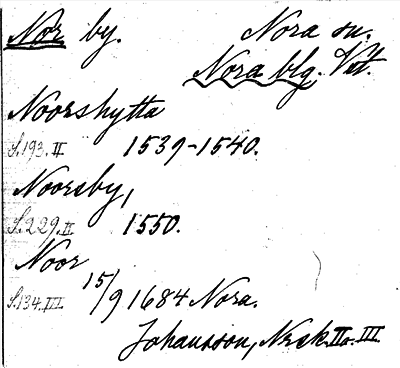 Nor by. Nora sn.
Nora blg. Vtl.
Noorshytta
S.193.II 1539-1540.
Noorsby,
S.229.II 1550.
Noor
S.134.III 15/9 1684 Nora.
Johansson, Nask. II o. III